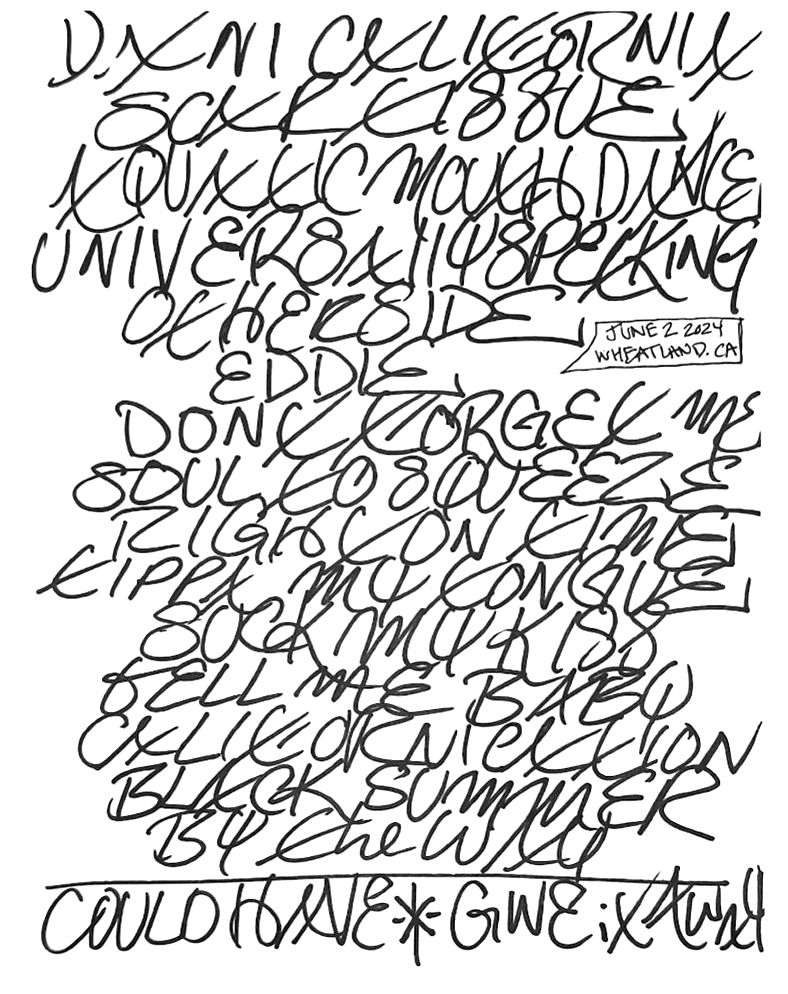 DANI CALIFORNIA
SCAR TISSUE
AQUATIC MOUTH DANCE
UNIVERSALLY SPEAKING
OTHERSIDE
JUNE 2 2024
WHEATLAND. CA
EDDIE
DONT FORGET ME
SOUL TO SQUEEZE
RIGHT ON TIME
TIPPA MY TONGUE
SUCK MY KISS
TELL ME BABY
CALIFORNICATION
BLACK SUMMER
BY THE WAY
COULD HAVE * GIVE it AWAY